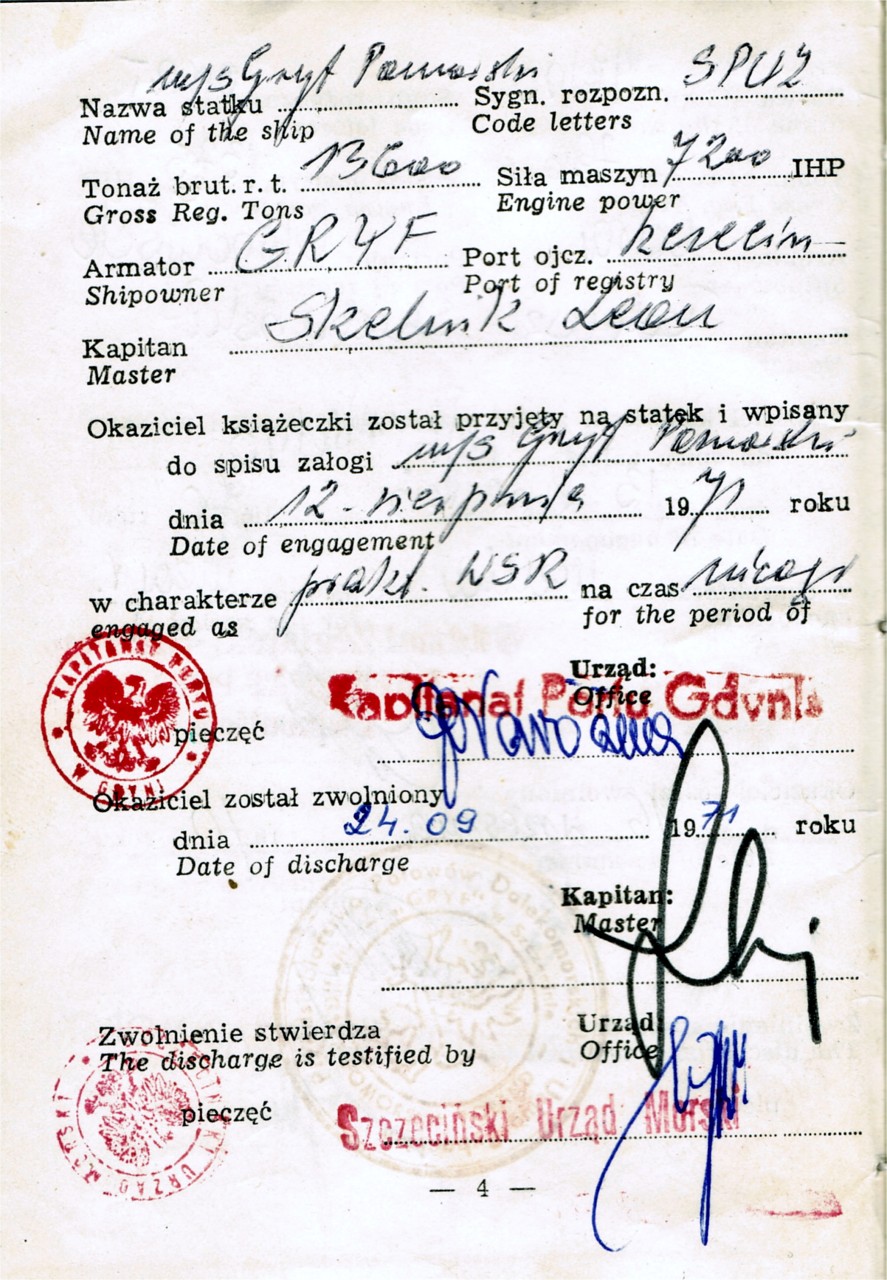 Nazwa statku m/s Gryf Pomorski Sygn. rozpozn. SPUZ
Name of the ship Code letters
Tonaż brut. r. t. 13600 Siła maszyn 7200 IHP
Gross Reg. Tons Engine power
Armator GRYF Port ojcz. Szczecin
Shipowner Port of registry
Kapitan Skelnik Leon
Master
Okaziciel książeczki został przyjęty na statek i wpisany
do spisu załogi m/s Gryf Pomorski
dnia 12 - sierpnia 1971 roku
Date of engagement
w charakterze prakt. WSR na czas
engaged as for the period of
KAPITANAT PORTU W GDYNI
Urząd:
Kapitanat Portu Gdynia
Office
pieczęć
Okaziciel został zwolniony
dnia 24.09 1971 roku
Date of discharge
Kapitan:
Master
Zwolnienie stwierdza Urząd:
The discharge is testified by Office
pieczęć
Szczeciński Urząd Morski
— 4 —